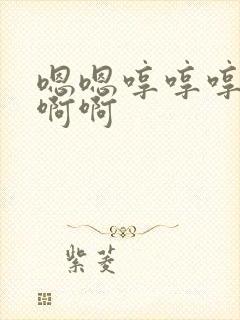 嗯嗯哼哼哼
啊啊
紫菱